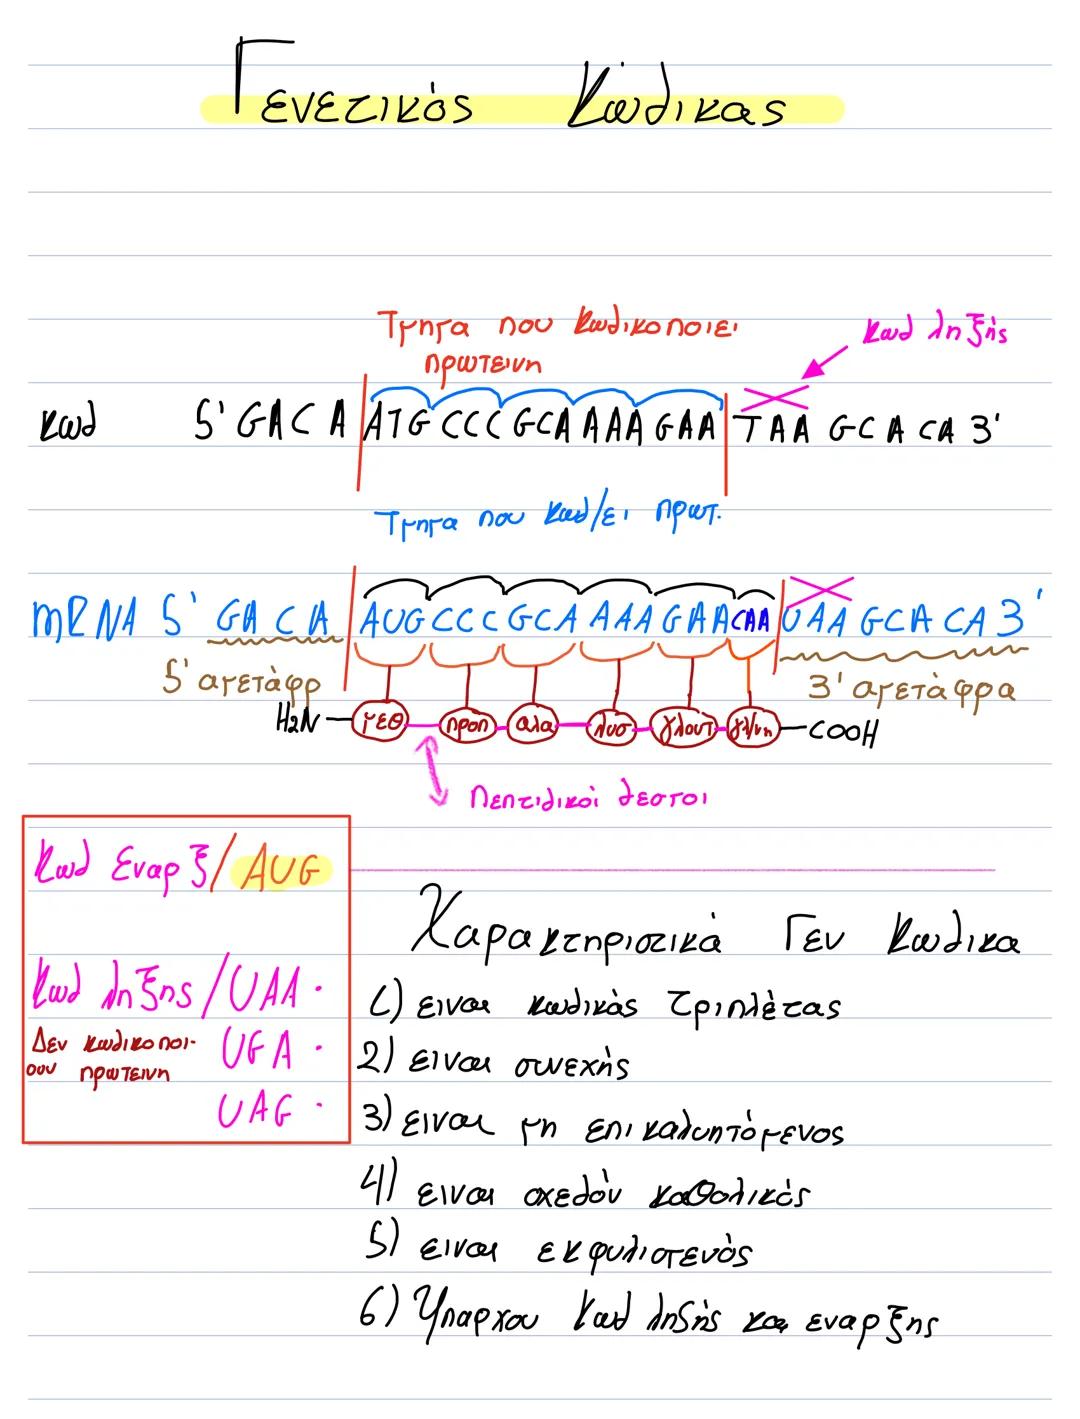 Γενετικός Κώδικας
Τμημα που κωδικοποιει
πρωτεινη
κωδ ληξής
κωδ 5' GACA ATG CCC GCA AAA GAA TAA GCA CA 3'
Τμημα που κωδ/ει πρωτ.
mRNA 5' GACA AUG CCC GCA AAA GAA CAA UAA GCA CA 3'
5' αμετάφρ 3' αμετάφρα
H2N μεθ προπ αλα λυσ γλουτ γλ/νη COOH
Πεπτιδικοί δεσμοι
Κωδ εναρξ/AUG
Κωδ ληξης/UAA.
Δεν κωδικοποι-
ουν πρωτεινη
UGA.
UAG.
Χαρακτηριστικά Γεν Κωδικα
1) ειναι κωδικάς τριπλέτας
2) ειναι συνεχής
3) ειναι μη επικαλυπτόμενος
4) ειναι σχεδόν καθολικός
5) ειναι εκφυλισμενός
6) Υπαρχου κωδ ληξής και εναρξης